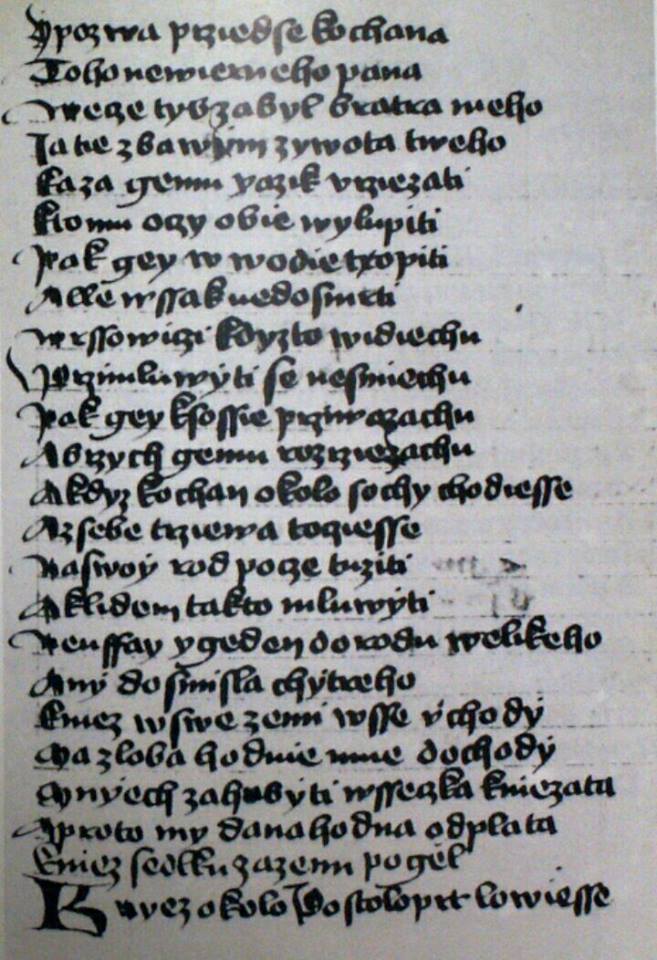 Ypozwa prziedse kochana
Tohonewierneho pana
Wecze tys zabyl bratra meho
Ja tie zbawym zywota tweho
kaza gemu yazik vrziezati
ktomu oczy obie wylupiti
Pak gey w wodie txopiti
Alle wssak nedosmrti
wrssowiczi kdyzto widiechu
Przimluwyti se nesmiechu
Pak gey ksossie przywazachu
Abrzych gemu rozrziezachu
Akdyz kochan okolo sochy chodiesse
Azsebe trziewa tocziesse
naswoy rod pocze tuziti
Aklidem takto mluwyti
Neuffay ygeden dorodu welikeho
Any dosmisla chytreho
Kniez wswe zemi wsse vchody
Ma zloba hodnie mne dochody
Mnyech zahubyti wsseczka kniezata
Aproto my danahodna odplata
Kniez sedlku zazenu pogel
Knyez okolo Postoloprt lowiesse